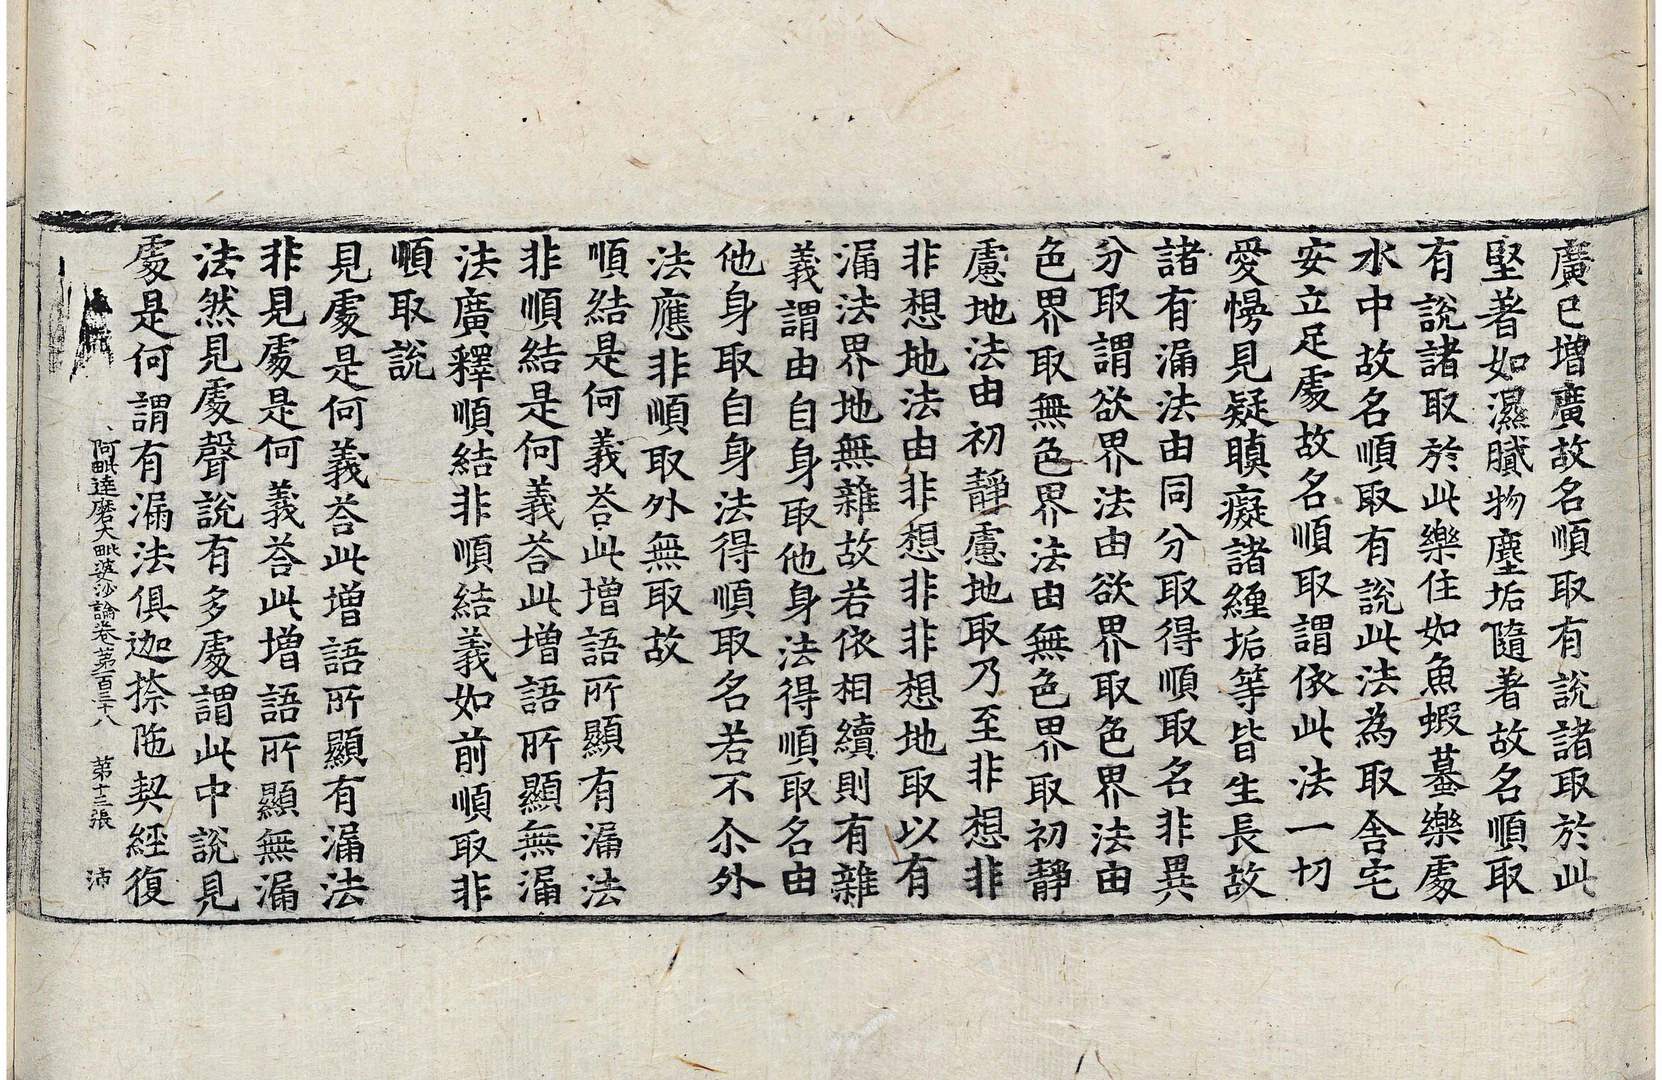 廣已增廣故名順取有說諸取於此
堅著如濕膩物塵垢隨著故名順取
有說諸取於此樂住如魚蝦蟇樂處
水中故名順取有說此法為取舍宅
安立足處故名順取謂依此法一切
愛慢見疑瞋癡諸纏垢等皆生長故
諸有漏法由同分取得順取名非異
分取謂欲界法由欲界取色界法由
色界取無色界法由無色界取初靜
慮地法由初靜慮地取乃至非想非
非想地法由非想非非想地取以有
漏法界地無雜故若依相續則有雜
義謂由自身取他身法得順取名由
他身取自身法得順取名若不尒外
法應非順取外無取故
順結是何義荅此增語所顯有漏法
非順結是何義荅此增語所顯無漏
法廣釋順結非順結義如前順取非
順取說
見處是何義荅此增語所顯有漏法
非見處是何義荅此增語所顯無漏
法然見處聲說有多處謂此中說見
處是何謂有漏法俱迦捺陁契經復
阿毗達磨大毗婆沙論卷第一百三十八 第十三張 沛